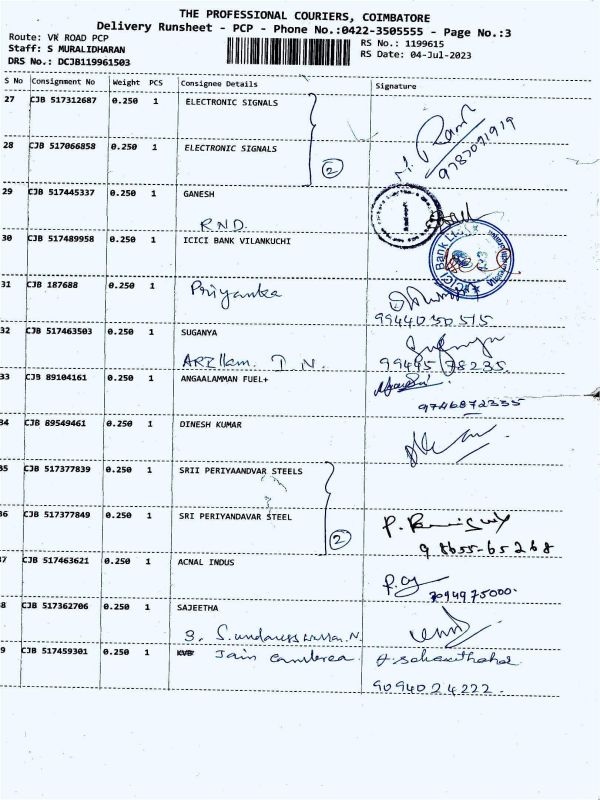 THE PROFESSIONAL COURIERS, COIMBATORE
Delivery Runsheet - PCP - Phone No.:0422-3505555 - Page No.:3
Route: VK ROAD PCP
Staff: S MURALIDHARAN
DRS No.: DCJB119961503
RS No.: 1199615
RS Date: 04-Jul-2023
S No Consignment No Weight PCS Consignee Details Signature
27 CJB 517312687 0.250 1 ELECTRONIC SIGNALS
28 CJB 517066858 0.250 1 ELECTRONIC SIGNALS
2
9787091919
29 CJB 517445337 0.250 1 GANESH
R.N.D.
30 CJB 517489958 0.250 1 ICICI BANK VILANKUCHI
ICICI Bank
31 CJB 187688 0.250 1 Priyanka
9944030515
32 CJB 517463503 0.250 1 SUGANYA
99445 78235.
33 CJB 89104161 0.250 1 ANGAALAMMAN FUEL+
9746872335
34 CJB 89549461 0.250 1 DINESH KUMAR
35 CJB 517377839 0.250 1 SRII PERIYAANDVAR STEELS
36 CJB 517377849 0.250 1 SRI PERIYANDAVAR STEEL
2
98655-65268
37 CJB 517463621 0.250 1 ACNAL INDUS
7094975000.
38 CJB 517362706 0.250 1 SAJEETHA
39 CJB 517459301 0.250 1 KVB Jain
9094024222.